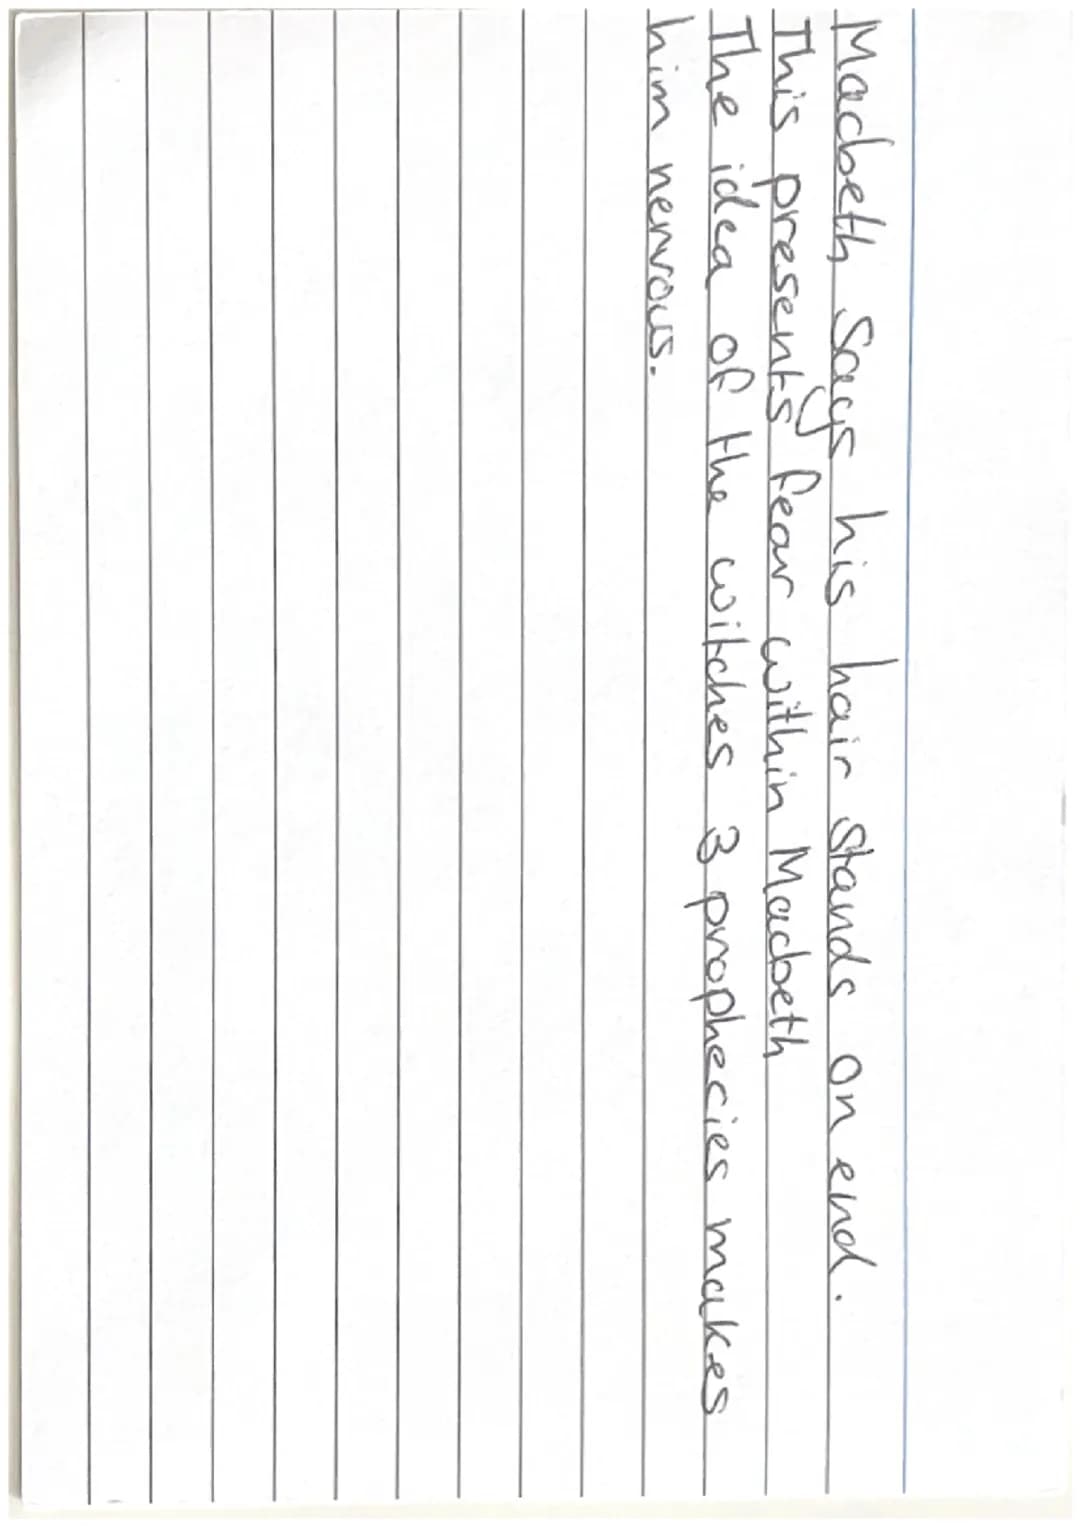 Macbeth Says his hair stands on end.
This presents fear within Macbeth
The idea of the witches 3 prophecies makes
him nervous.